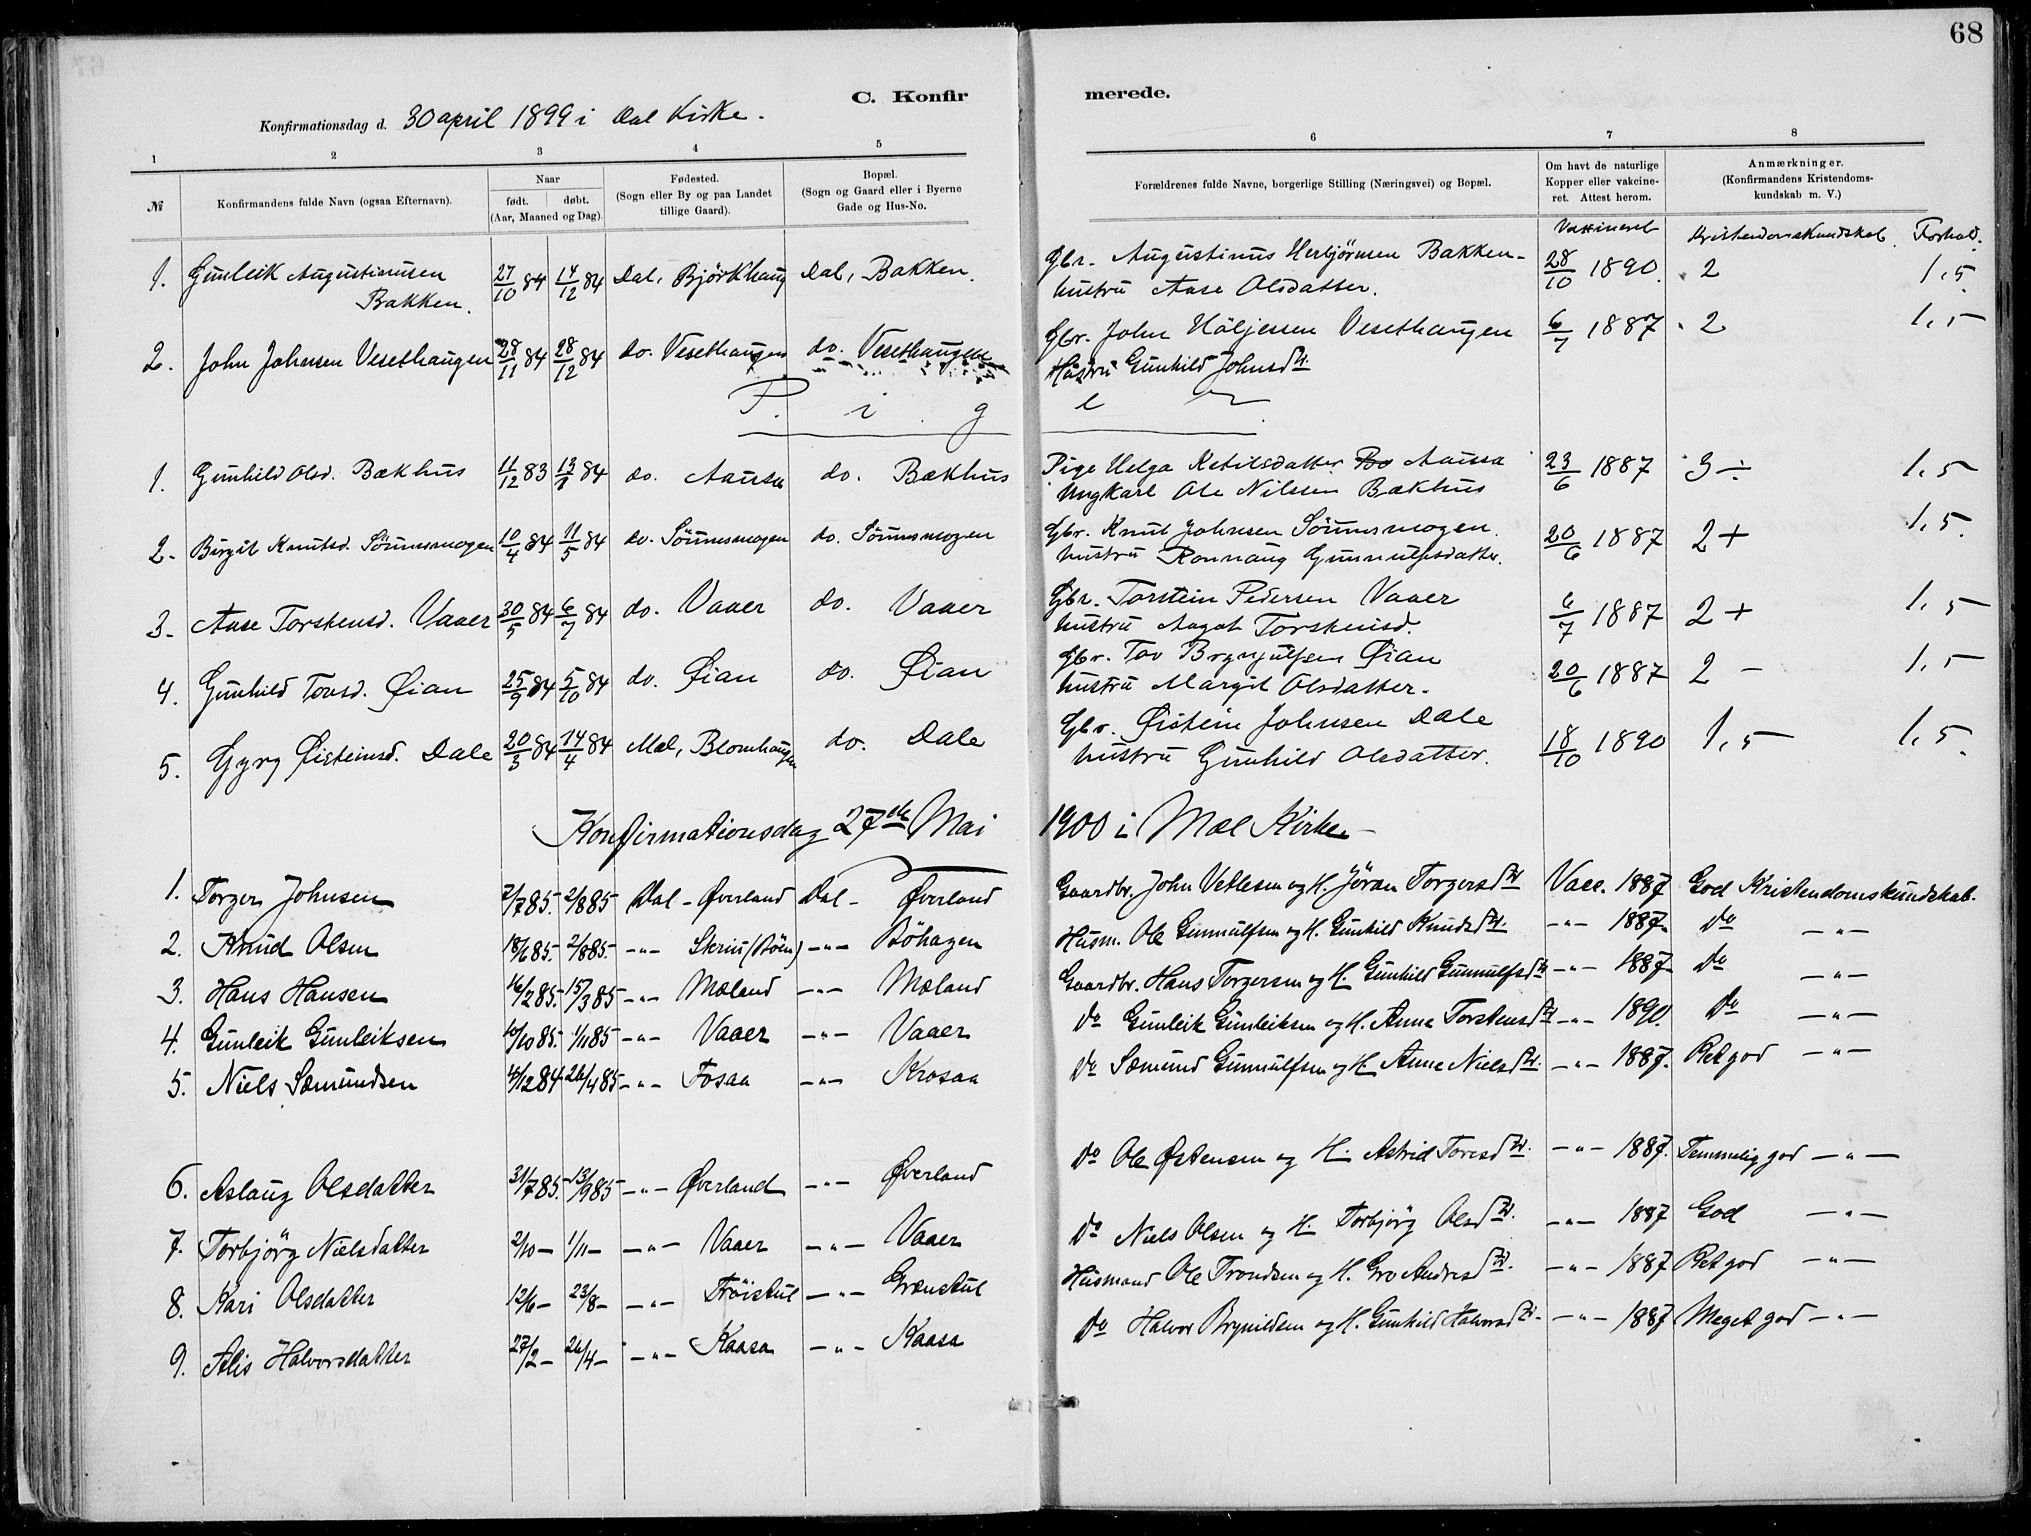 68
C. Konfirmerede.
Konfirmationsdag d. 30 april 1899 i Dal Kirke.
1 2 3 4 5 6 7 8
№
Konfirmandens fulde Navn (ogsaa Efternavn).
Naar
født. døbt.
(Aar, Maaned og Dag).
Fødested.
(Sogn eller By og paa Landet
tillige Gaard).
Bopæl.
(Sogn og Gaard eller i Byerne
Gade og Hus-No.
Forældrenes fulde Navne, borgerlige Stilling (Næringsvei) og Bopæl.
Om havt de naturlige
Kopper eller vakcine-
ret. Attest herom.
Anmærkninger.
(Konfirmandens Kristendoms-
kundskab m. V.)
Vaksineret Kristendomskundskab. Forhold.
1. Gunleik Augustinusen 27/10 84 14/12 84 Dal, Björkhaug Dal, Bakken. Gbr. Augustinus Herbjörnsen Bakken - 28/10 1890. 2 1,5
Bakken. hustru Aase Olsdatter.
2. John Johnsen Vesethaugen 28/11 84 28/12 84 do. Vesethaugen do. Vesethaugen Gbr. John Höljessen Vesethaugen 6/7 1887 2 1,5
Hustru Gunhild Johnsdtr.
P. i g e r
1. Gunhild Olsd. Bækhus 11/12 83 13/1 84 do. Aausa do. Bækhus Pige Helga Ketilsdatter Aausa 23/6 1887 3 ÷ 1,5
Ungkarl Ole Nilssen Bækhus
2. Birgit Knutsd. Söumsmogen 10/4 84 11/5 84 do. Söumsmogen do. Söumsmogen Gbr. Knut Johnsen Söumsmogen 20/6 1887 2+ 1,5
hustru Ronnaug Gunnulfsdatter.
3. Aase Torstensd. Vaaer 30/5 84 6/7 84 do. Vaaer do. Vaaer Gbr. Torstein Pedersen Vaaer 6/7 1887 2+ 1,5
hustru Aagot Torsteinsd.
4. Gunhild Tovsd. Øian 25/9 84 5/10 84 do. Øian do. Øian Gbr. Tov Brynjulfsen Øian 20/6 1887 2 - 1,5
hustru Margit Olsdatter.
5. Gyrg Øisteinsd. Dale 20/3 84 14/4 84 Mæl, Blomhaugen do. Dale Gbr. Øistein Johnsen Dale 18/10 1890 1,5 1,5
hustru Gunhild Olsdatter.
Konfirmationsdag 27de Mai 1900 i Mæl Kirke -
1. Torger Johnsen 7/7 85. 2/8 85 Dal - Øverland Dal - Øverland Gaardbr. John Vetlesen og H. Jöran Torgersdtr Vacc. 1887 God Kristendomskundskab.
2. Knud Olsen 18/6 85. 2/8 85. -"- Skriu (Böen) -"- Böhagen Husm. Ole Gunnulfsen og H. Gunhild Knudsdtr. -"- 1887. Do -"-
3. Hans Hansen 16/2 85. 15/3 85 -"- Mæland -"- Mæland Gaardbr. Hans Torgersen og H. Gunhild Gunnulfsdtr -"- 1887. Do -"-
4. Gunleik Gunleiksen 10/10 85. 1/11 85 -"- Vaaer -"- Vaaer Do Gunleik Gunleiksen og H. Anne Torstensdtr -"- 1890. Do -"-
5. Niels Sæmundsen 4/12 84. 26/4 85 -"- Fosaa -"- Krosaa Do Sæmund Gunnulfsen og H. Anne Nielsdtr. -"- 1887. Ret god -"-
6. Aslaug Olsdatter 31/7 85. 13/9 85 -"- Øverland -"- Øverland Do Ole Østensen og H. Astrid Toresdtr. -"- 1887. Temmelig god -"-
7. Torbjörg Nielsdatter 2/10 - 1/11 - -"- Vaaer -"- Vaaer Do Niels Olsen og H. Torbjörg Olsdtr. -"- 1887 God -"-
8. Kari Olsdatter 12/6 - 23/8 - -"- Fröistul -"- Grænstul Husmand Ole Trondsen og H. Gro Andresdtr. -"- 1887 Ret god -"-
9. Alis Halvorsdatter 27/2 - 26/4 - -"- Kaasa -"- Kaasa Do Halvor Brynildsen og H. Gunhild Halvorsdtr. -"- 1887 Meget god -"-